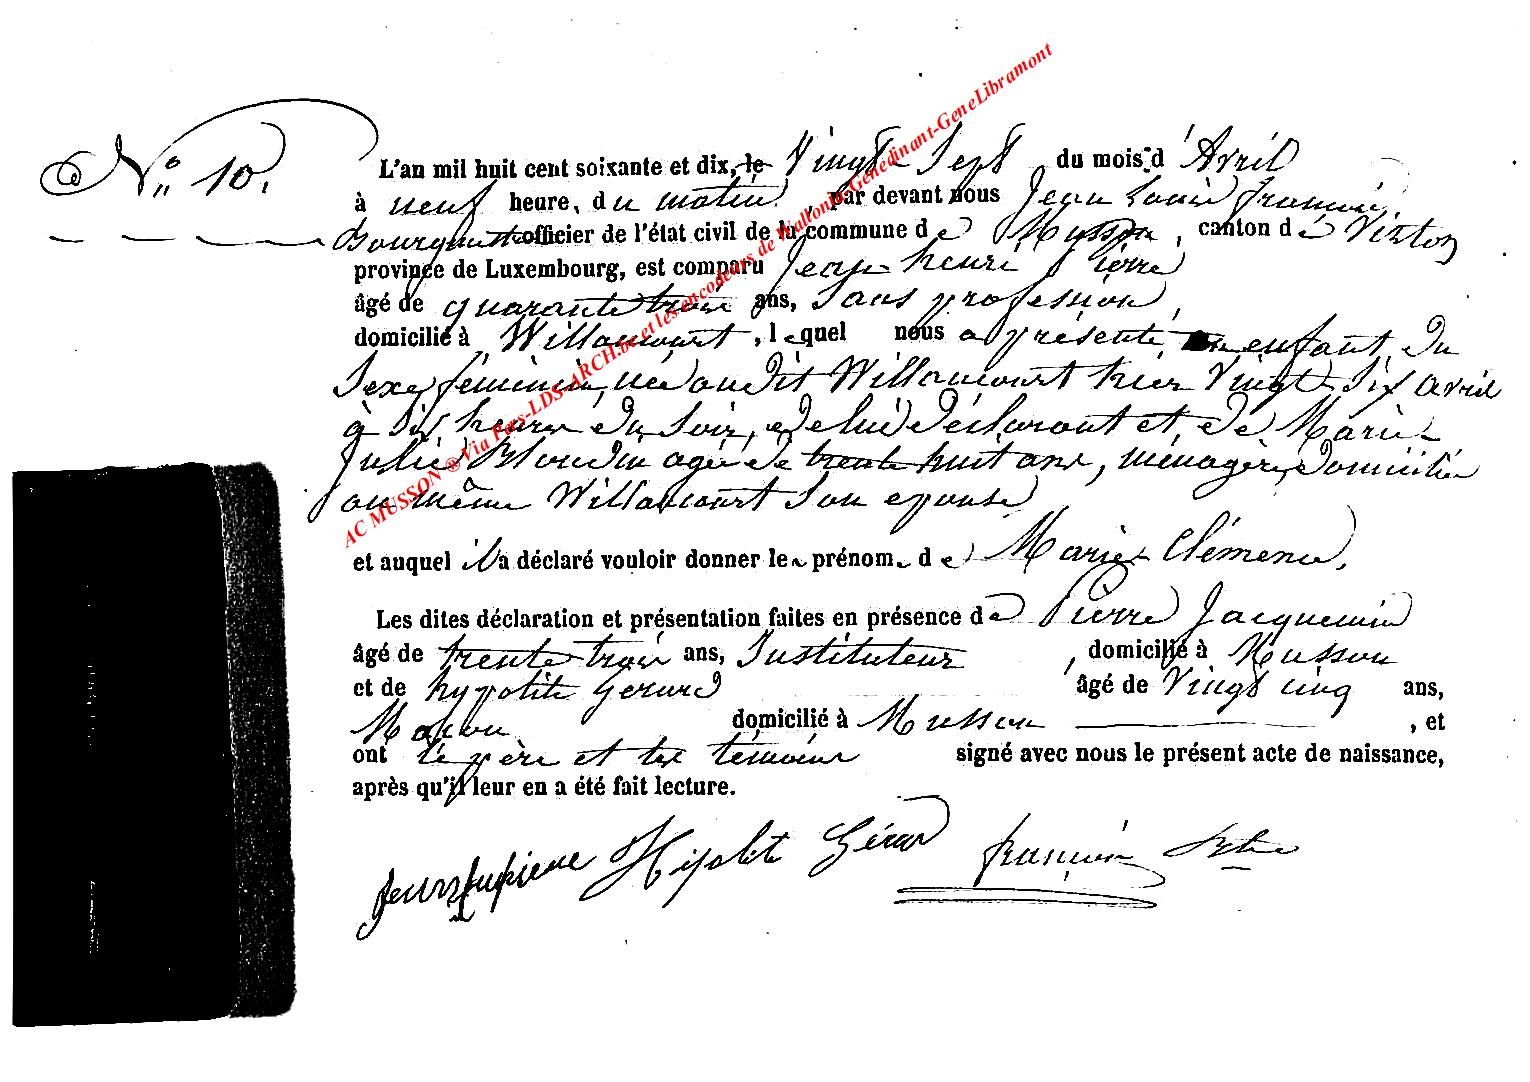 N° 10.
L'an mil huit cent soixante et dix, le Vingt Sept du mois d'Avril
à neuf heure, du matin, par devant nous Jean Louis François
officier de l'état civil de la commune de Musson, canton de Virton
province de Luxembourg, est comparu Jean henri Pierre
âgé de quarante trois ans, Sans profession,
domicilié à Willancourt, lequel nous a présenté un enfant du
Sexe féminin, née audit Willancourt hier Vingt Six avril
à Six heures du Soir, de lui déclarant et de Marie
Julie Blondin agée de trente huit ans, ménagère, domiciliée
au même Willancourt Son épouse
et auquel il a déclaré vouloir donner le prénom de Marie Clémence.
Les dites déclaration et présentation faites en présence de Pierre Jacquemin
âgé de trente trois ans, Instituteur, domicilié à Musson
et de hypolite Gerard âgé de Vingt cinq ans,
Maçon domicilié à Musson, et
ont le père et les témoins signé avec nous le présent acte de naissance,
après qu'il leur en a été fait lecture.
Hipolit Gérar françois
AC MUSSON @Via Pers-LDS-ARCH.be et les encodeurs de Wallonia-Genedinant-GeneLibramont